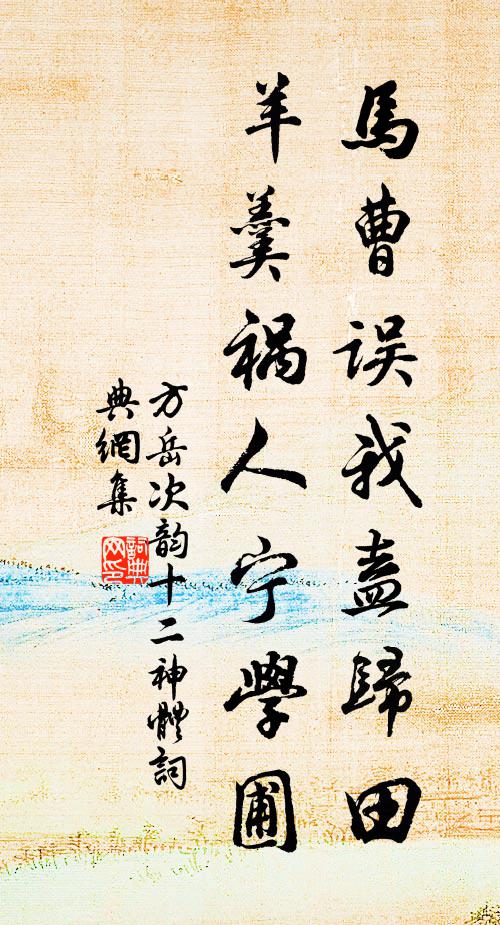 馬曹误我盍歸田
羊羹禍人宁學圃
方岳次韵十二神體詞
典網集
詞典網印